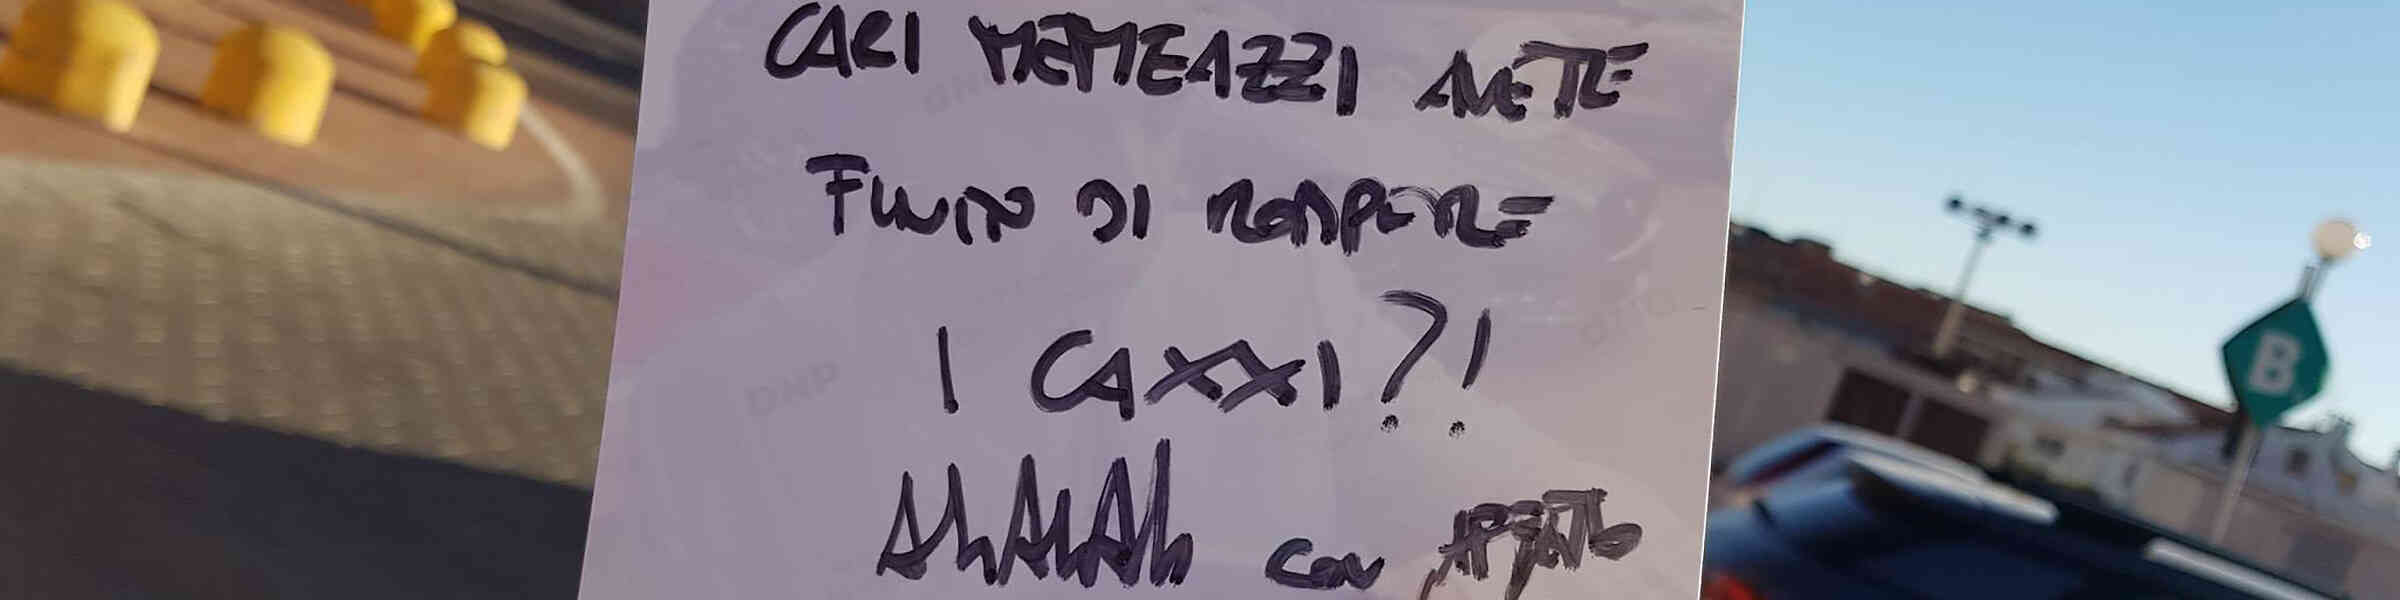 CARI MEMEAZZI AVETE
FINITO DI ROMPERE
I CAXXI?!
AhAhAh con AFFETTO
B
DNP